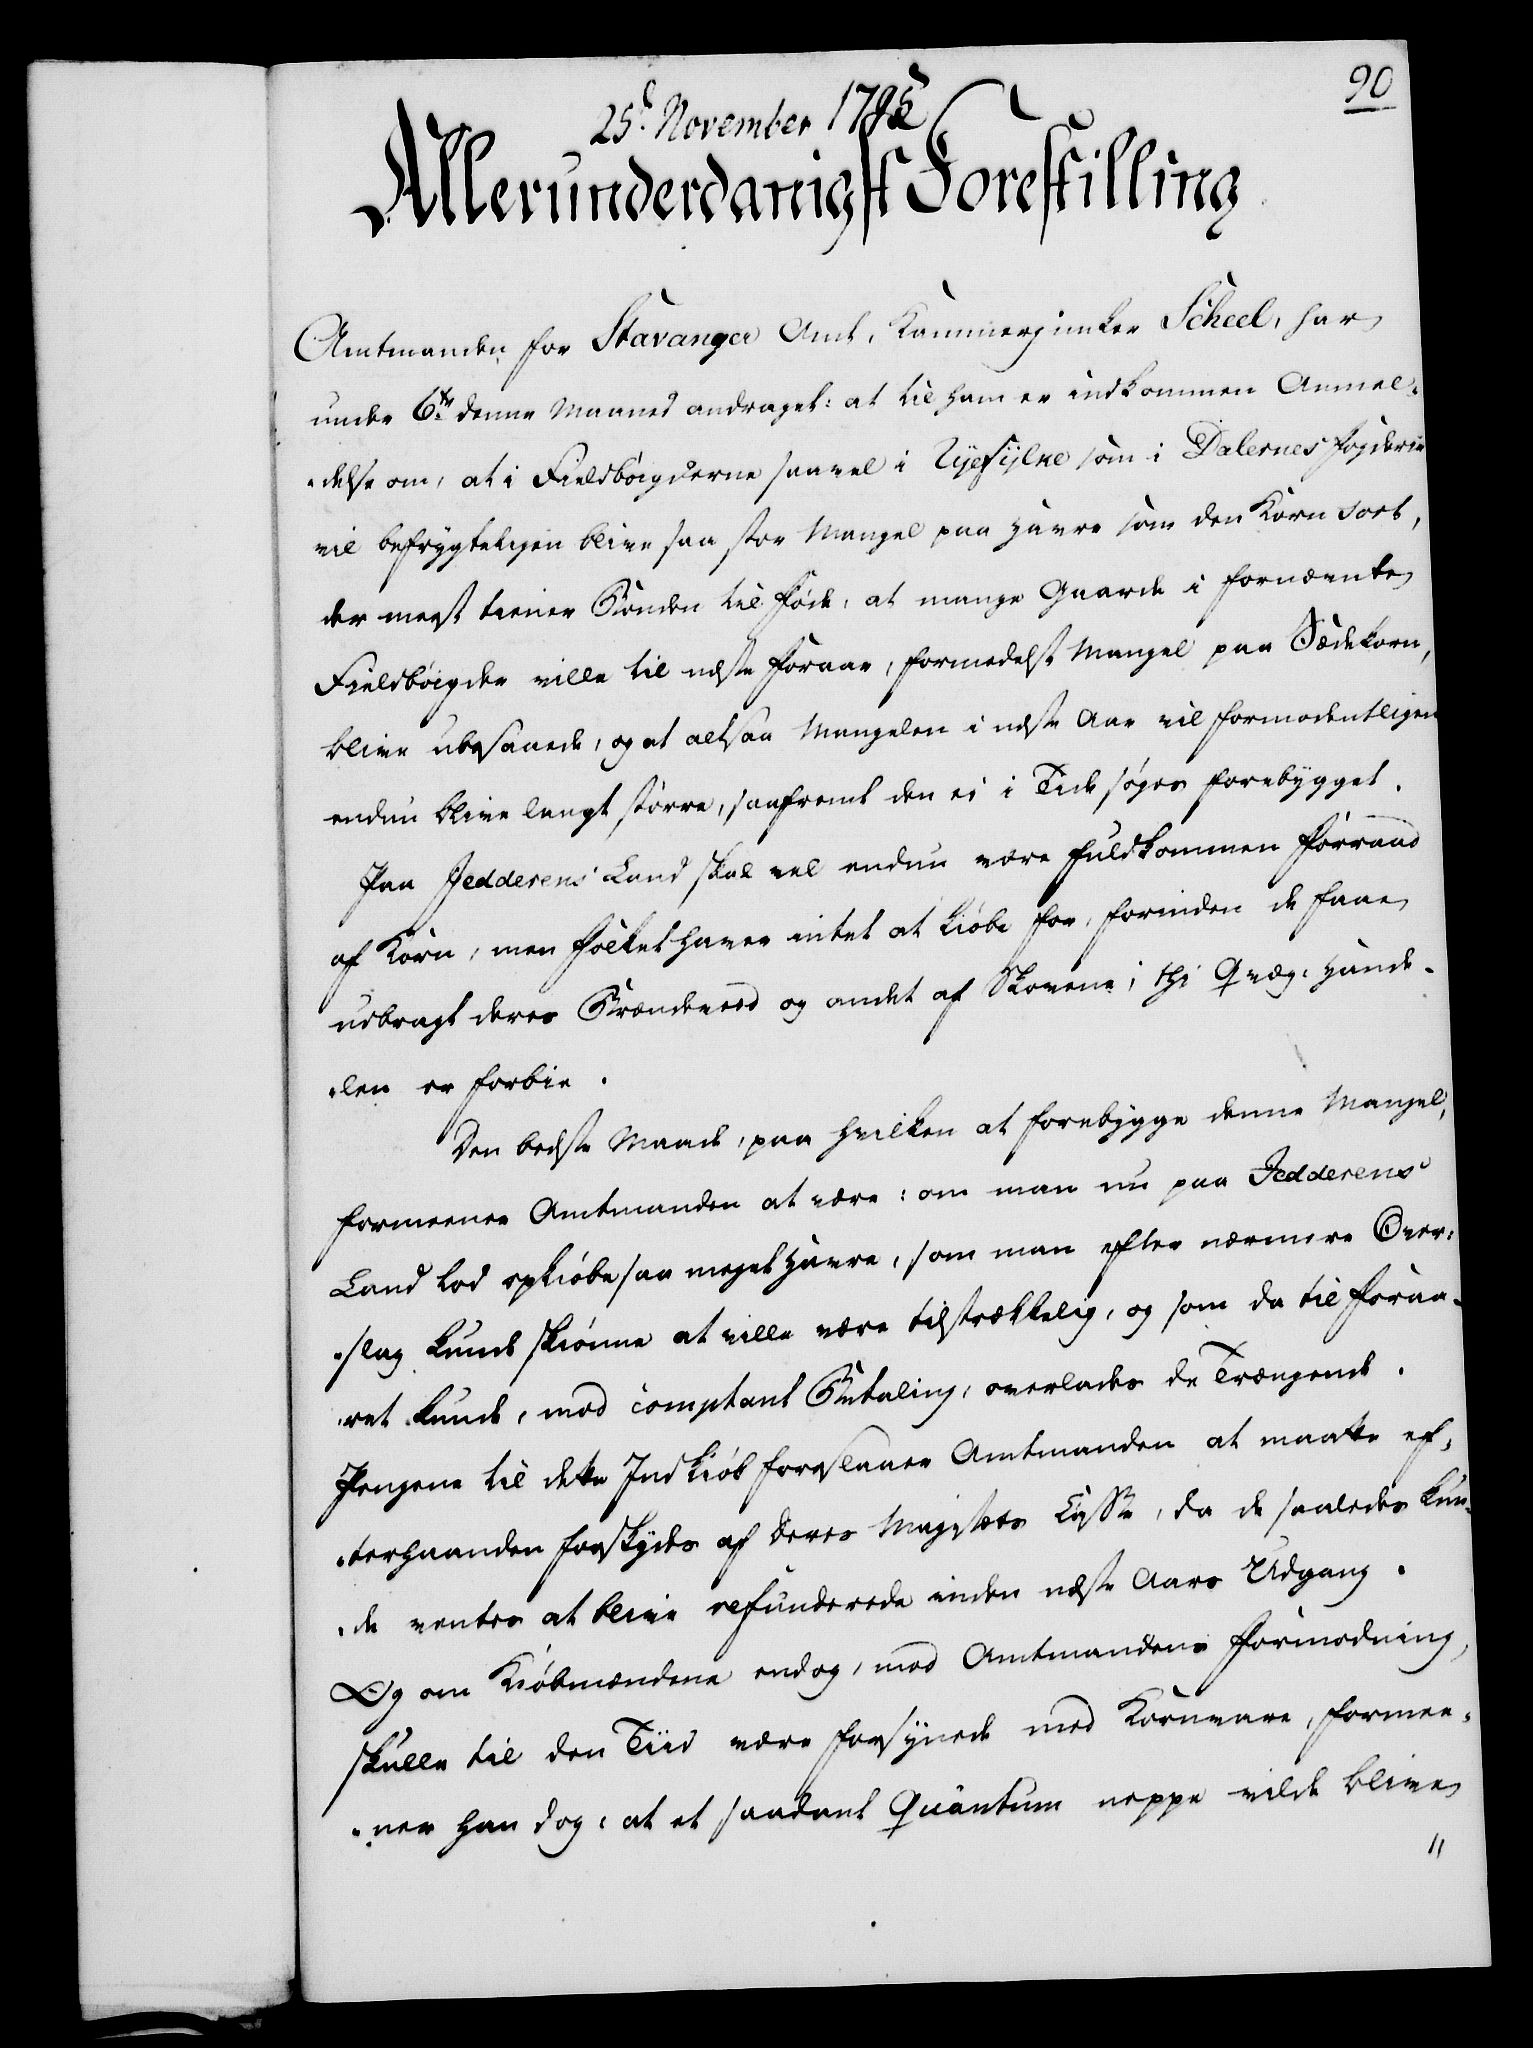 90
25d November 1785
Allerunderdanigst Forestilling
Amtmanden for Stavanger Amt, Kammerjunker Scheel, har
under 6te denne Maaned andraget: at til ham er indkommen Anmel-
-delse om, at i Fieldbøigderne saavel i Ryefylke som i Dalernes Fogderie
vil befrygteligen blive saa stor Mangel paa Havre som den Korn Sort,
der mest tiener Bonden til Føde, at mange Gaarde i fornævnte
Fieldbøigder ville til næste Foraar, formedelst Mangel paa Sædekorn,
blive ubesaaede, og at altsaa Mangelen i næste Aar vil formodentligen
endnu blive langt større, saafremt den ei i Tide søges forebygget.
Paa Jedderens Land skal vel endnu være fuldkommen Forraad
af Korn, men Folket haver intet at kiøbe for, forinden de faae
udbragt deres Brændeved og andet af Skovene; thi Qvæg-Hande-
-len er forbie.
Den bedste Maade, paa hvilken at forebygge denne Mangel,
formeener Amtmanden at være: om man nu paa Jedderens
Land lod opkiøbe saa meget Havre, som man efter nærmere Over-
-slag kunde skiønne at ville være tilstrækkelig, og som da til Foraa-
-ret kunde, mod comptant Betaling, overlades de Trængende.
Pengene til dette Indkiøb foreslaaer Amtmanden at maatte ef-
-terhaanden forskydes af Deres Majestæts Casse, da de saaledes kun-
-de ventes at blive refunderede inden næste Aars Udgang.
Og om Kiøbmændene endog, mod Amtmandens Formodning,
skulle til den Tiid være forsynede med Kornvare, formee-
-ner han dog, at et saadant Quantum neppe vilde blive
"